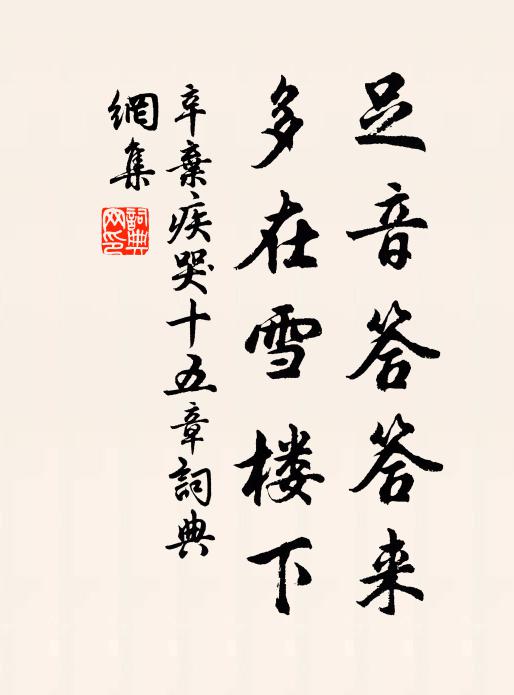 足音答答来
多在雪楼下
辛棄疾哭十五章詞典
網集
詞典网印